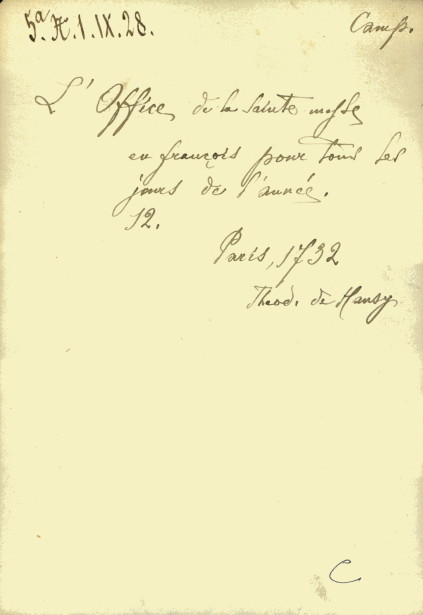 5ª A.1.IX.28.
Camp.
L'Office de la sainte messe
en françois pour tous les
jours de l'année.
12.
Paris, 1732
Théod. de Hansy
C